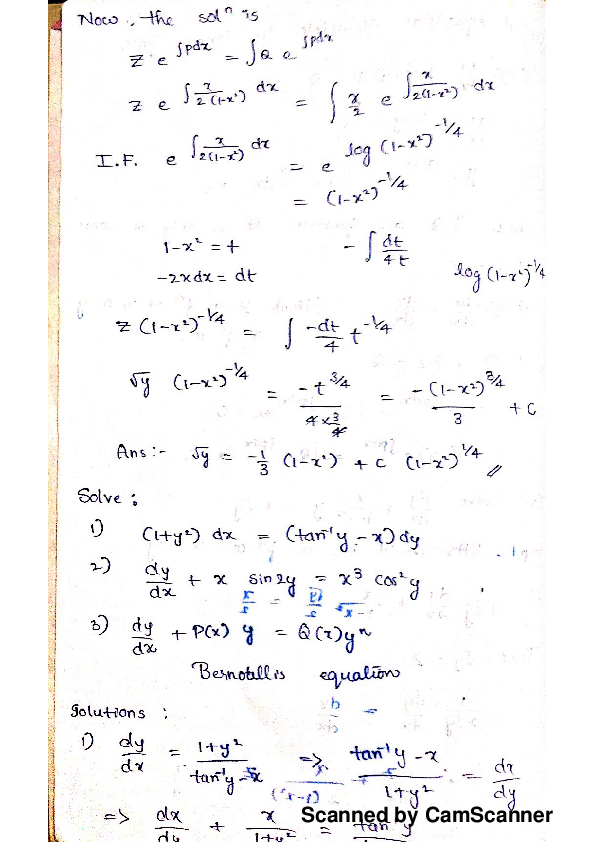 Now, the solⁿ is
z e^∫pdx = ∫Q e^∫pdx
z e^∫x/2(1-x²) dx = ∫ x/2 e^∫x/2(1-x²) dx
I.F. e^∫x/2(1-x²) dx = e^log (1-x²)^-1/4
= (1-x²)^-1/4
1-x² = t - ∫ dt/4t
-2xdx = dt log (1-x²)^-1/4
z (1-x²)^-1/4 = ∫ -dt/4 t^-1/4
√y (1-x²)^-1/4 = -t^3/4 / 4×3/4 = -(1-x²)^3/4 / 3 + C
Ans:- √y = -1/3 (1-x²) + C (1-x²)^1/4 //
Solve :
1) (1+y²) dx = (tan⁻¹y - x) dy
2) dy/dx + x sin2y = x³ cos²y
3) dy/dx + P(x) y = Q(x)yⁿ
Bernoullis equation
Solutions :
1) dy/dx = 1+y² / tan⁻¹y - x => tan⁻¹y - x / 1+y² = dx/dy
=> dx/dy + x/1+y² = tan⁻¹y
Scanned by CamScanner